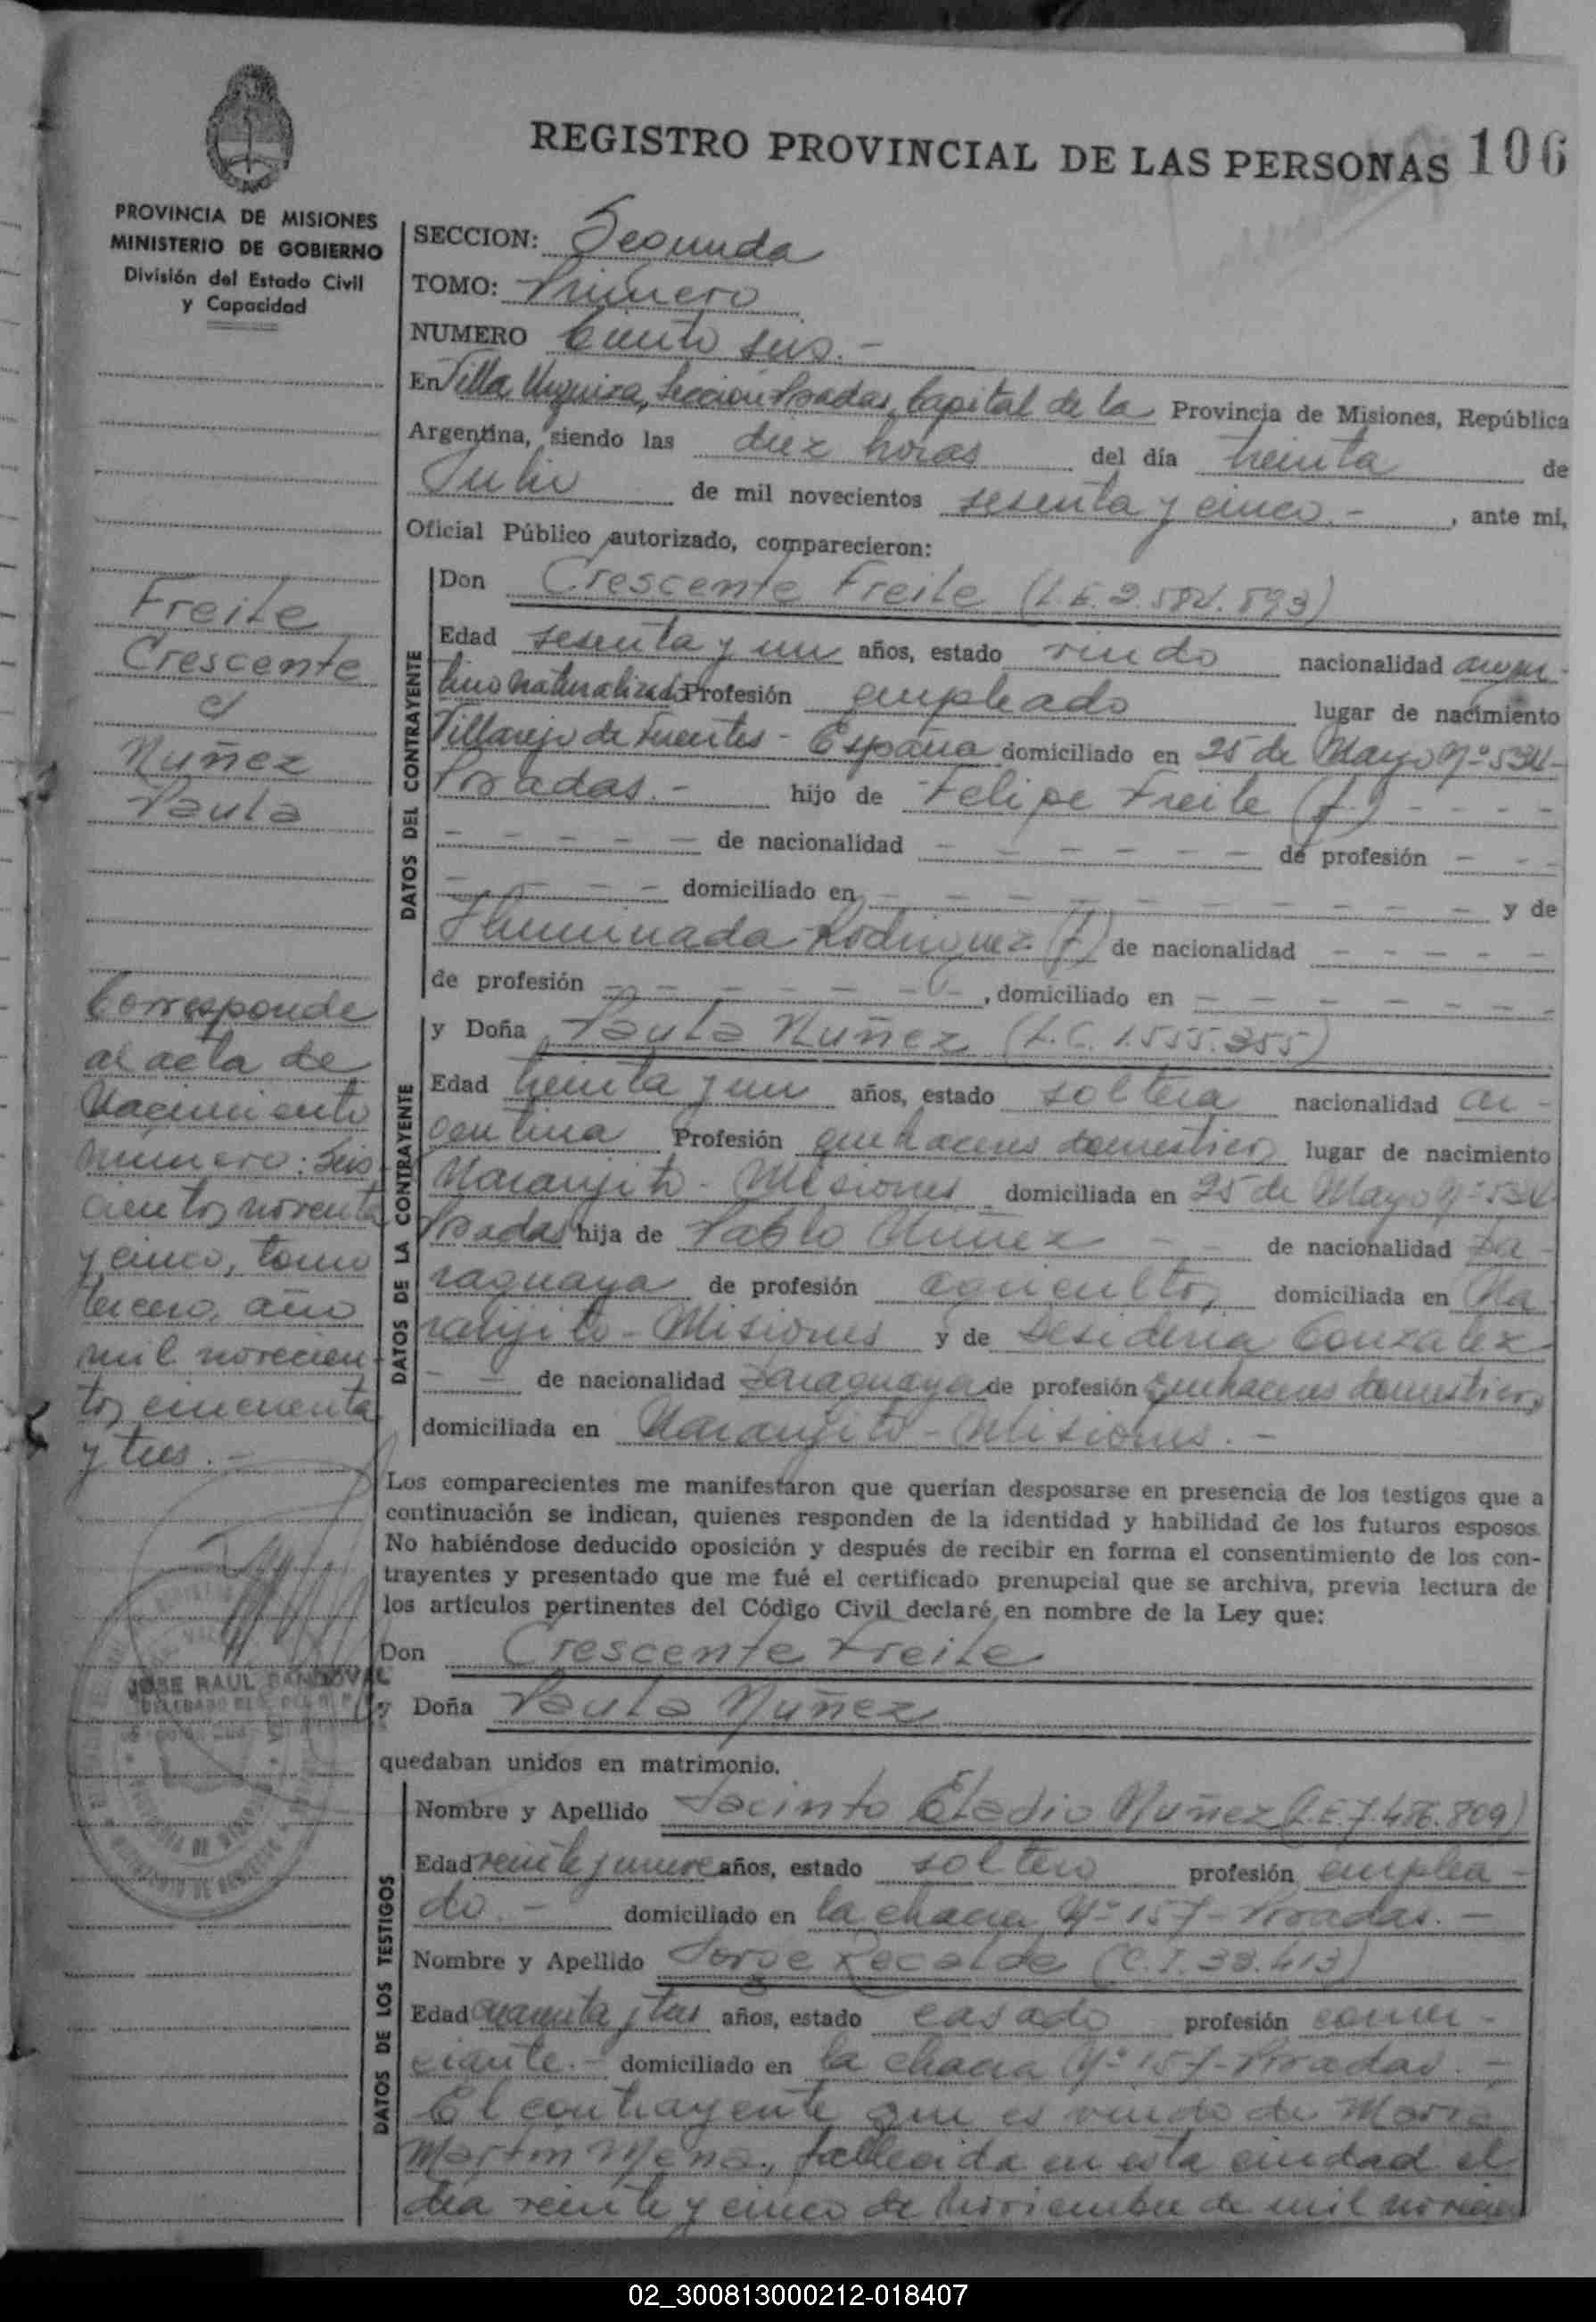 REGISTRO PROVINCIAL DE LAS PERSONAS 106
PROVINCIA DE MISIONES
MINISTERIO DE GOBIERNO
División del Estado Civil
y Capacidad
SECCION: Segunda
TOMO: Primero
NUMERO Ciento seis.-
En Villa Urquiza, Sección Posadas, Capital de la Provincia de Misiones, República
Argentina, siendo las diez horas del día treinta de
Julio de mil novecientos sesenta y cinco.-, ante mi,
Oficial Público autorizado, comparecieron:
Freile
Crescente
c/
Nuñez
Paula
Corresponde
al acta de
Nacimiento
número: Seis
cientos noventa
y cinco, tomo
tercero, año
mil novecien-
tos cincuenta
y tres.-
JOSE RAUL SANDOVAL
DATOS DEL CONTRAYENTE
Don Crescente Freile (L.E. 2.584.893)
Edad sesenta y un años, estado viudo nacionalidad argen-
tino naturalizado Profesión empleado lugar de nacimiento
Villarejo de Fuentes - España domiciliado en 25 de Mayo Nº 534-
Posadas.- hijo de Felipe Freile (f)
de nacionalidad de profesión
domiciliado en y de
Iluminada Rodriguez (f) de nacionalidad
de profesión , domiciliado en
DATOS DE LA CONTRAYENTE
y Doña Paula Nuñez (L.C. 1.555.355)
Edad treinta y un años, estado soltera nacionalidad ar-
gentina Profesión quehaceres domésticos lugar de nacimiento
Naranjito - Misiones domiciliada en 25 de Mayo Nº 534-
Posadas hija de Pablo Nuñez - - de nacionalidad pa-
raguaya de profesión agricultor, domiciliada en Na-
ranjito - Misiones y de Desideria Gonzalez
- - de nacionalidad paraguaya de profesión quehaceres domésticos,
domiciliada en Naranjito - Misiones.-
Los comparecientes me manifestaron que querían desposarse en presencia de los testigos que a
continuación se indican, quienes responden de la identidad y habilidad de los futuros esposos.
No habiéndose deducido oposición y después de recibir en forma el consentimiento de los con-
trayentes y presentado que me fué el certificado prenupcial que se archiva, previa lectura de
los artículos pertinentes del Código Civil declaré, en nombre de la Ley que:
Don Crescente Freile
y Doña Paula Nuñez
quedaban unidos en matrimonio.
DATOS DE LOS TESTIGOS
Nombre y Apellido Jacinto Eladio Nuñez (L.E. 7.486.809)
Edad veinte y nueve años, estado soltero profesión emplea-
do.- domiciliado en la chacra Nº 157 - Posadas.-
Nombre y Apellido Jorge Recalde (C.I. 38.413)
Edad cuarenta y tres años, estado casado profesión comer-
ciante.- domiciliado en la chacra Nº 157 - Posadas.-
El contrayente que es viudo de Maria
Martin Mena, fallecida en esta ciudad el
día veinte y cinco de Noviembre de mil novecien
02_300813000212-018407